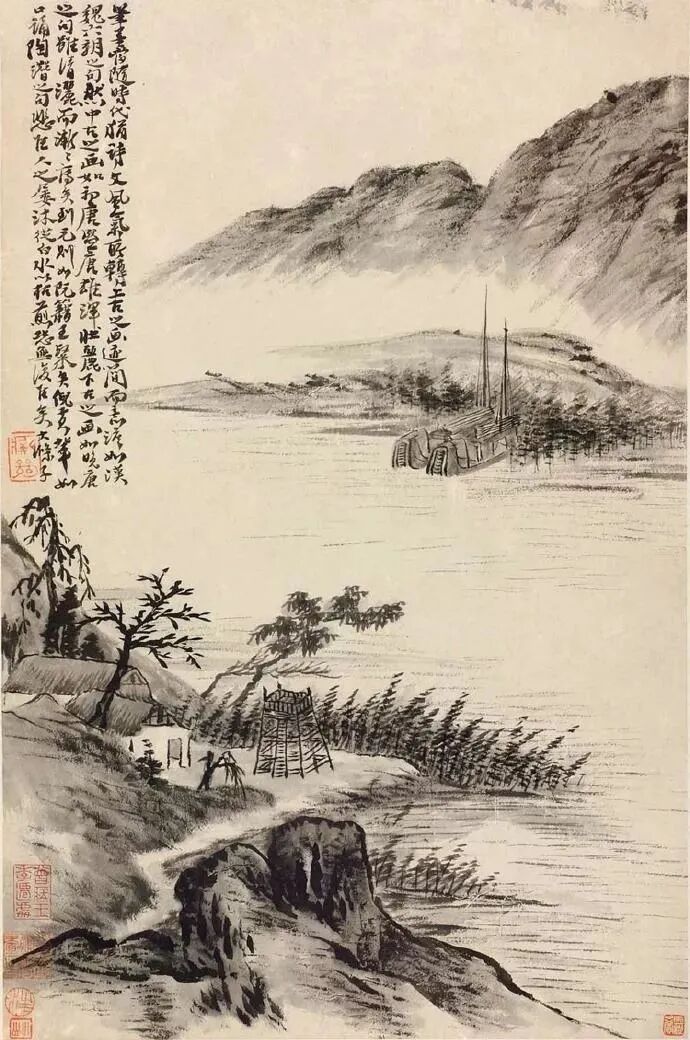 筆墨當隨時代猶詩文風氣所轉上古之畫迹簡而意淡如漢
魏六朝之句然中古之畫如初唐盛唐雄渾壯麗下古之畫如晚唐
之句雖清灑而漸〻薄矣到元則如阮籍王粲矣倪黃輩如
口誦陶潛之句悲佳人之屢沐從白水以枯煎恐無復佳矣大滌子